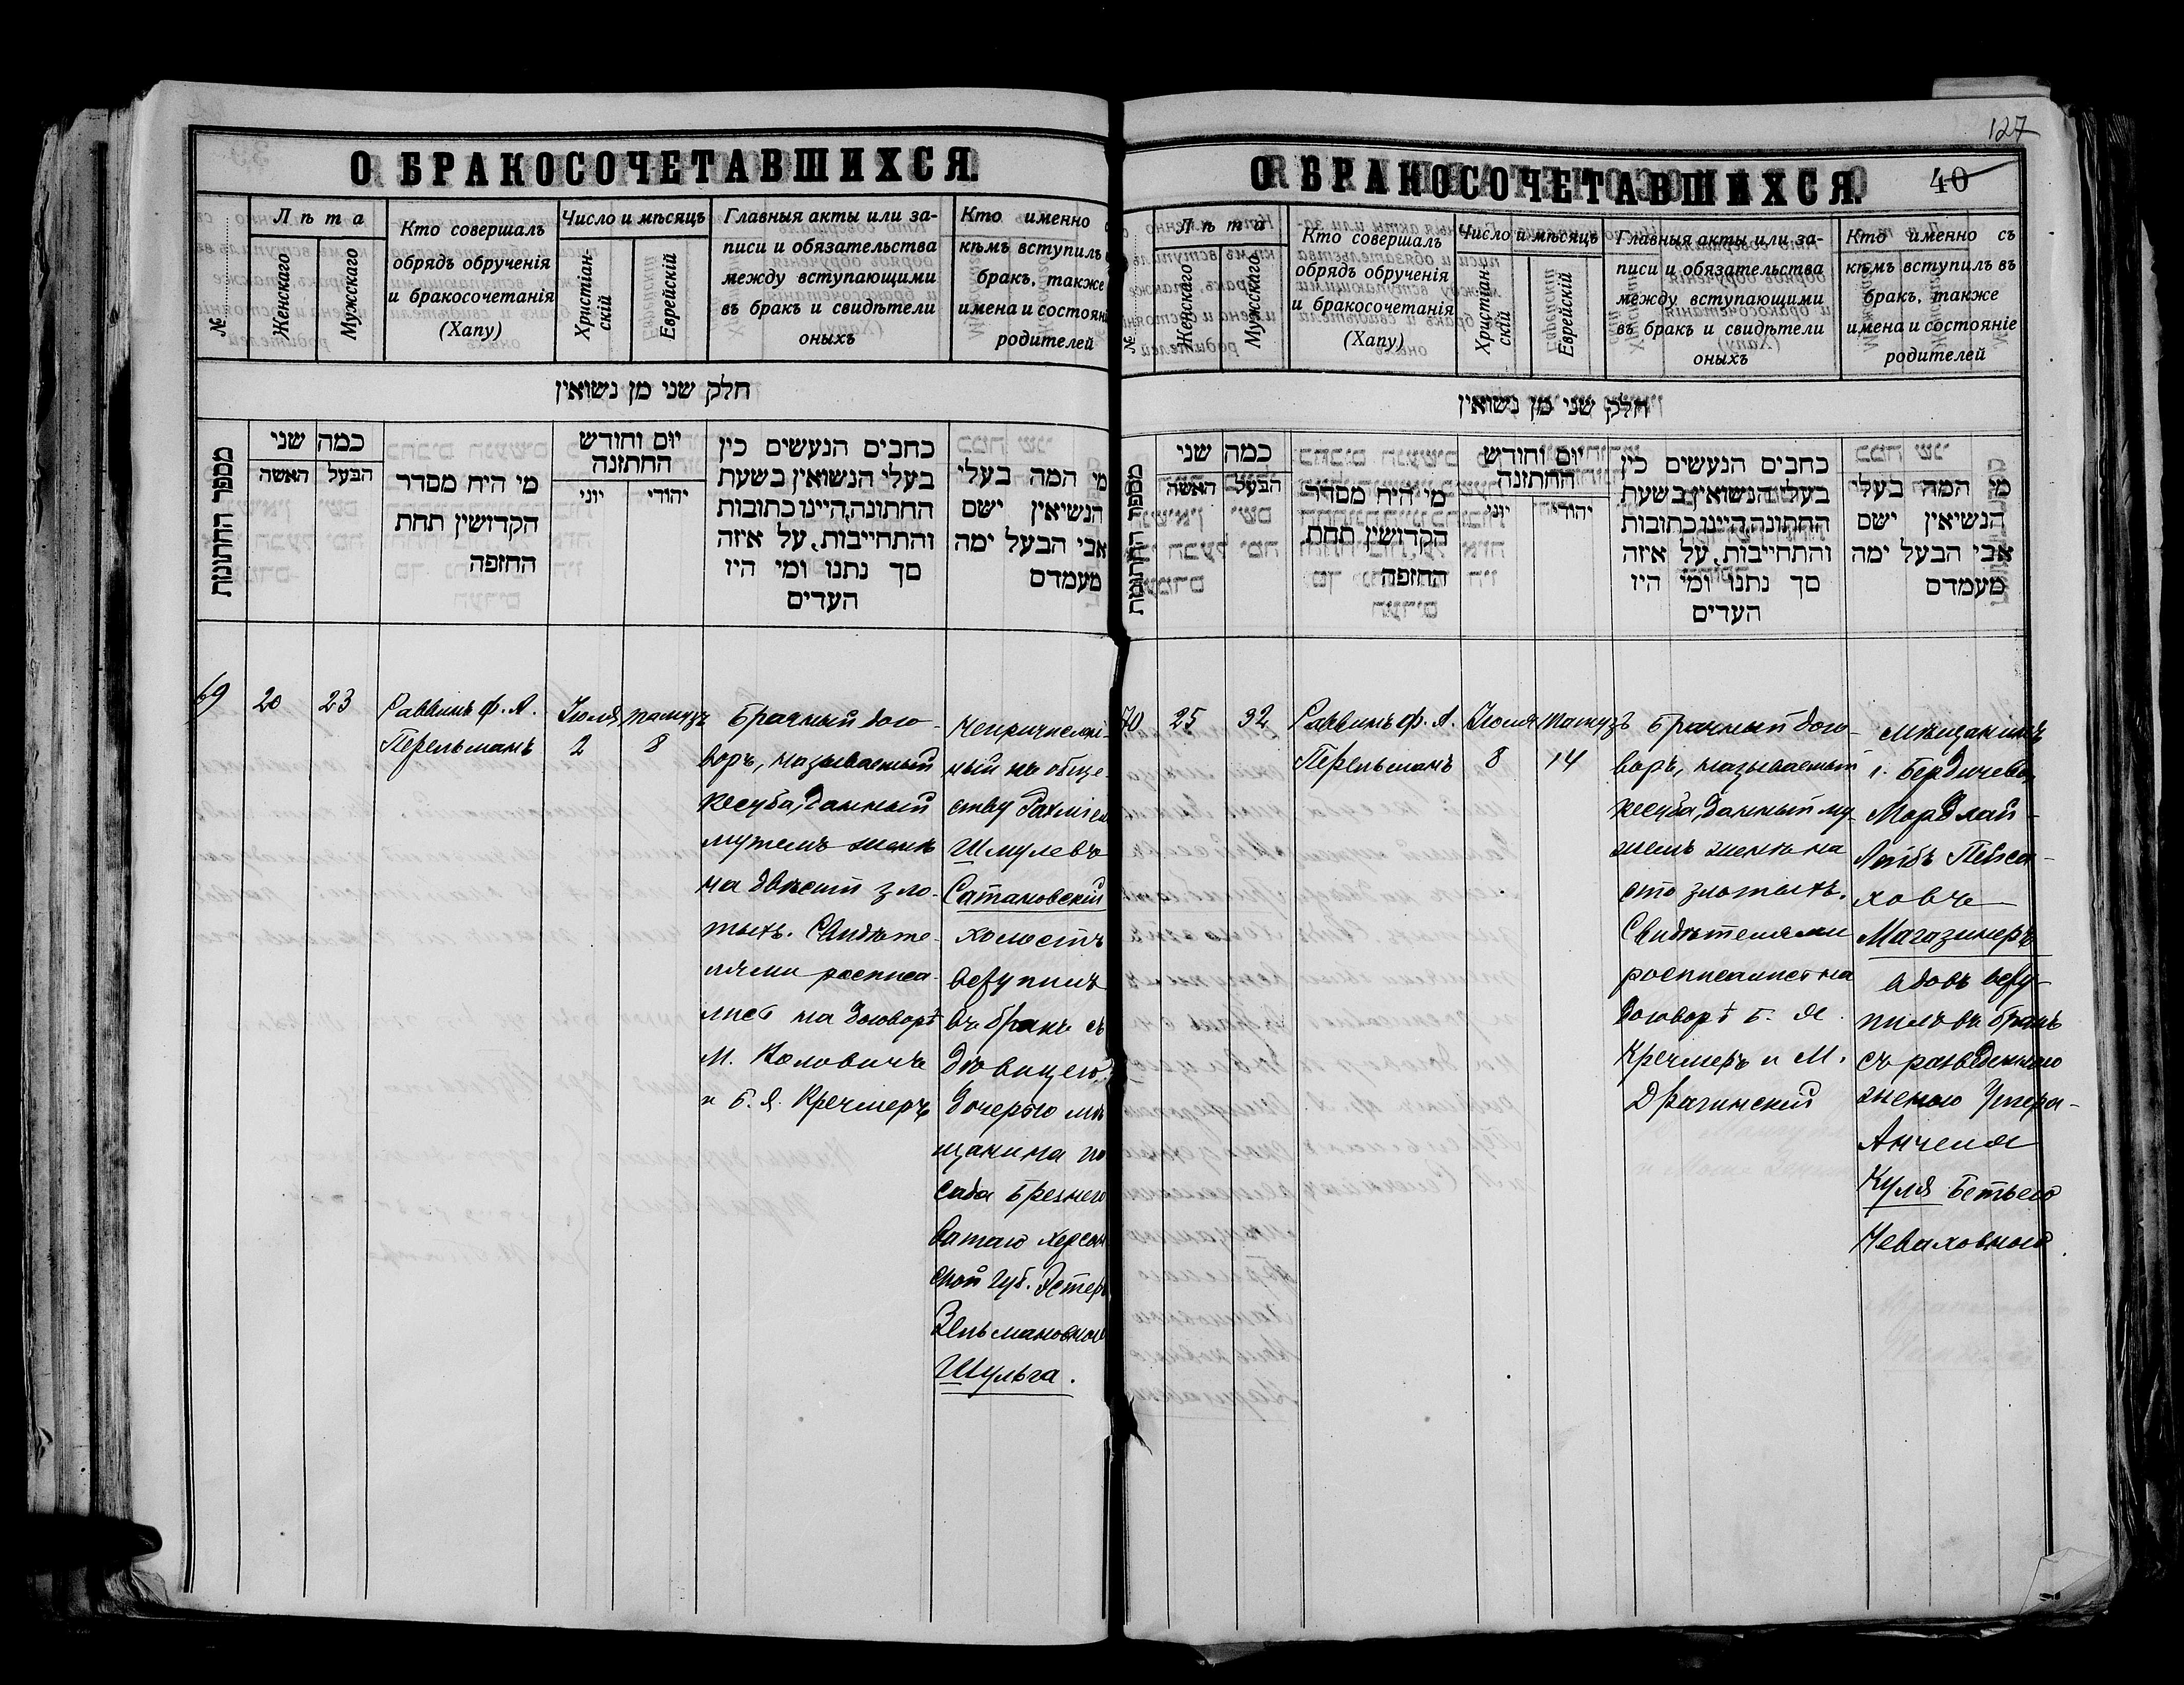 О БРАКОСОЧЕТАВШИХСЯ.
№
Лѣта
Женскаго
Мужскаго
Кто совершалъ
обрядъ обрученія
и бракосочетанія
(Хапу)
Число и мѣсяцъ
Христіан-
скій
Еврейскій
Главныя акты или за-
писи и обязательства
между вступающими
въ бракъ и свидѣтели
оныхъ
Кто именно
кѣмъ вступилъ
бракъ, также
имена и состояні
родителей
חלק שני מן נשואין
מספר החתונות
כמה שני
האשה
הבעל
מי היה מסדר
הקדושין תחת
החופה
יום וחודש
החתונה
יוני
יהודי
כתבים הנעשים בין
בעלי הנשואין בשעת
החתונה, היינו כתובות
והתחייבות, על איזה
סך נתנו ומי היו
העדים
מי המה בעלי
הנשואין ושם
אבי הבעל ומה
מעמדם
69
20
23
Раввинъ Ф. А.
Перельманъ
Іюля
2
Тамузъ
8
Брачный дого-
воръ, называемый
Кесуба, данный
мужемъ женѣ
на двѣсти зло-
тыхъ. Свидѣте-
лями росписа-
лись на договорѣ
М. Коловичъ
и Б. Я. Кречмеръ
Непричислен-
ный къ обще-
ству Рахміел
Шмулевъ
Сатановскій
холостъ
вступилъ
въ бракъ съ
дѣвицею,
дочерью мѣ
щанина по
сада Брезнего
ватаго Херсон
ской губ. Эстеръ
Зельмановною
Шульга.
127
О БРАКОСОЧЕТАВШИХСЯ.
40
№
Лѣта
Женскаго
Мужскаго
Кто совершалъ
обрядъ обрученія
и бракосочетанія
(Хапу)
Число и мѣсяцъ
Христіан-
скій
Еврейскій
Главныя акты или за-
писи и обязательства
между вступающими
въ бракъ и свидѣтели
оныхъ
Кто именно съ
кѣмъ вступилъ въ
бракъ, также
имена и состояніе
родителей
חלק שני מן נשואין
מספר החתונות
כמה שני
האשה
הבעל
מי היה מסדר
הקדושין תחת
החופה
יום וחודש
החתונה
יוני
יהודי
כתבים הנעשים בין
בעלי הנשואין בשעת
החתונה, היינו כתובות
והתחייבות, על איזה
סך נתנו ומי היו
העדים
מי המה בעלי
הנשואין ושם
אבי הבעל ומה
מעמדם
70
25
32
Раввинъ Ф. А.
Перельманъ
Іюля
8
Тамузъ
14
Брачный дого-
воръ, называемый
Кесуба, данный му-
жемъ женѣ на
сто злотыхъ.
Свидѣтелями
росписались на
договорѣ Б. Я.
Кречмеръ и М.
Драгинский
Мѣщанинъ
г. Бердичева
Мордхай-
Лейбъ Пейса-
ховъ
Магазинеръ
вдовъ всту-
пилъ въ бракъ
съ разведенною
женою Умера-
Анчеля
Куля Бетьею
Неваховною.